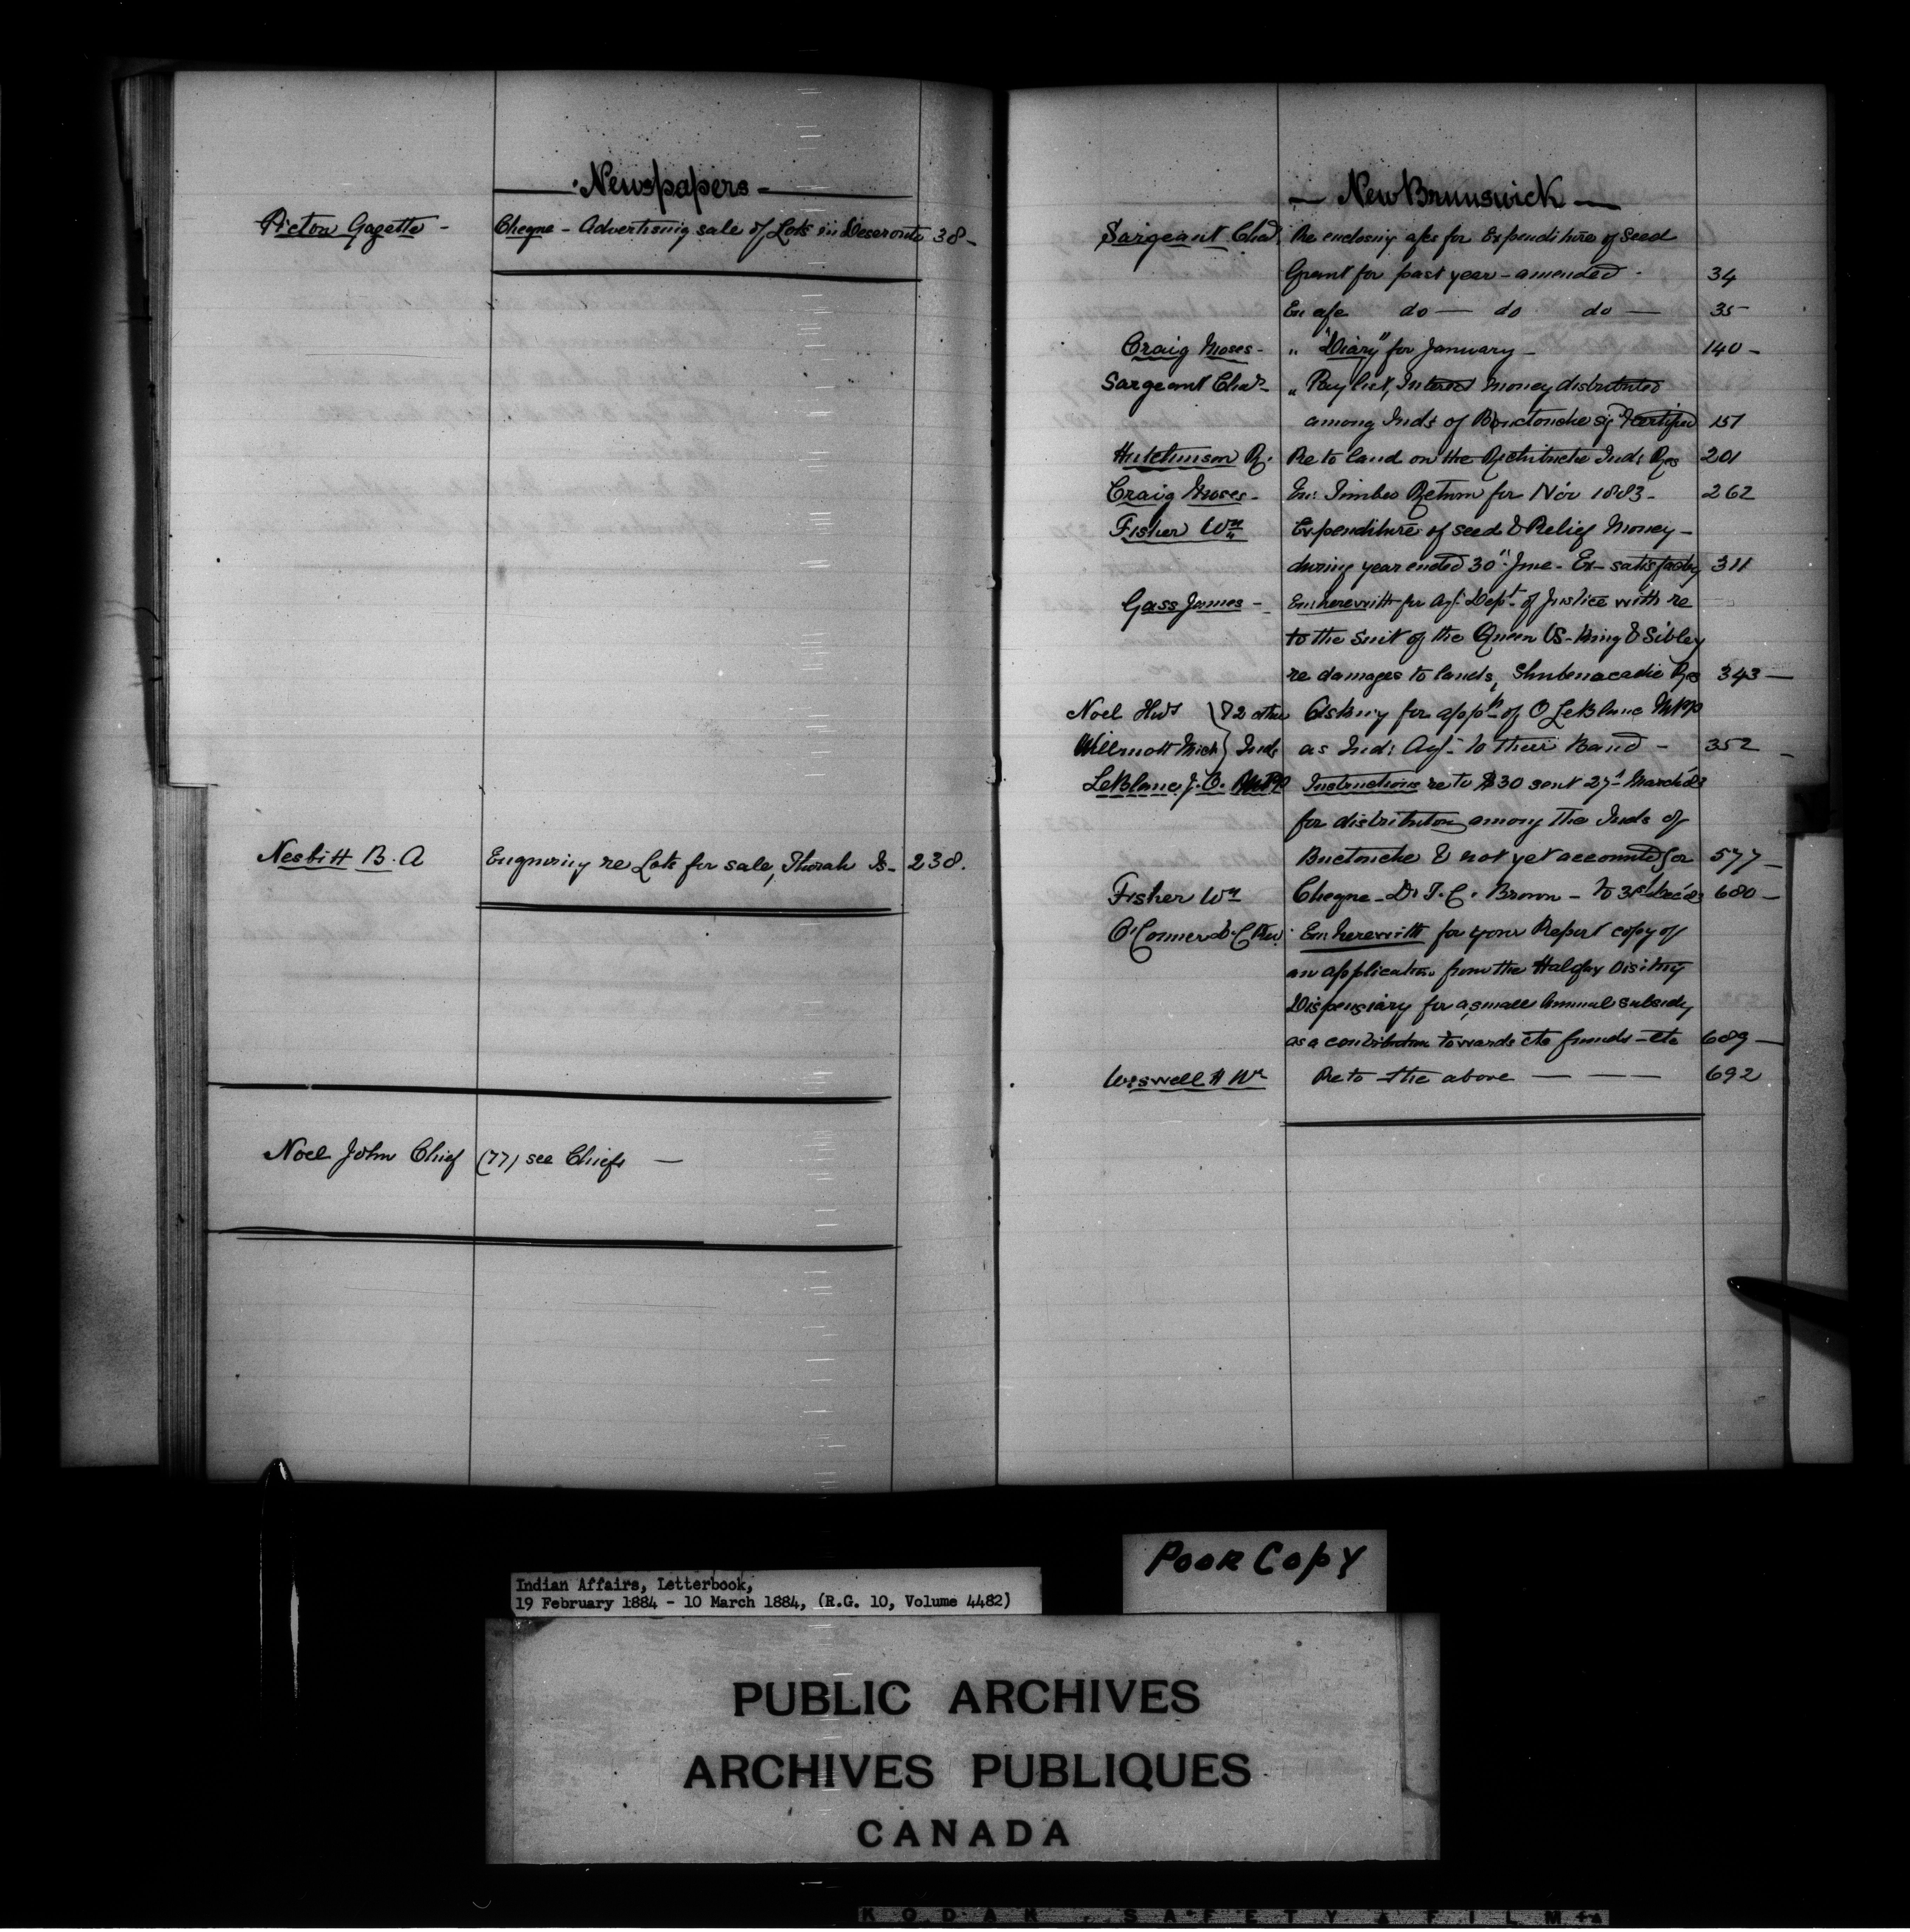 Newspapers
Picton Gazette - Cheque - Advertising sale of Lots in Deseronto 38 -
Nesbitt B. A Enquiring re Lots for sale, Thorah Is - 238.
Noel John Chief (77) see Chiefs —
— New Brunswick —
Sargeant Chas Re enclosing a/cs for Expenditure of Seed
Grant for past year - amended - 34
En a/c do — do do — 35 -
Craig Moses - " "Diary" for January - 140 -
Sargeant Chas - " Pay list, Interest money distributed
among Inds of Buctouche certified 157
Hutchinson R. Re to land on the Richibucto Ind: Res 201
Craig Moses - En: Timber Return for Nov 1883 - 262
Fisher Wm Expenditure of seed & Relief Money -
during year ended 30th June - Ex - satisfactory 311
Gass James - En: herewith for Dept of Justice with re
to the suit of the Queen vs - King & Sibley
re damages to lands, Shubenacadie Res 343 —
Noel & 2 other Asking for appt of O LeBlanc MPP
Willmott Mich Inds as Ind: Agt - to their Band - 352 -
LeBlanc, J. O. MPP Instructions re to $30 sent 27th March '83
for distribution among the Inds of
Buctouche & not yet accounted for 577 -
Fisher Wm Cheque - Dr. T. C. Brown - to 31st Dec '83 680 -
O'Conner D. C Rev. En: herewith for your Report copy of
an application from the Halifax Visiting
Dispensiary for a small Annual subsidy
as a contribution towards its funds - etc 689 —
Wiswell H Wm Re to the above — — — 692
Poor Copy
Indian Affairs, Letterbook,
19 February 1884 - 10 March 1884, (R.G. 10, Volume 4482)
PUBLIC ARCHIVES
ARCHIVES PUBLIQUES
CANADA
KODAK SAFETY FILM